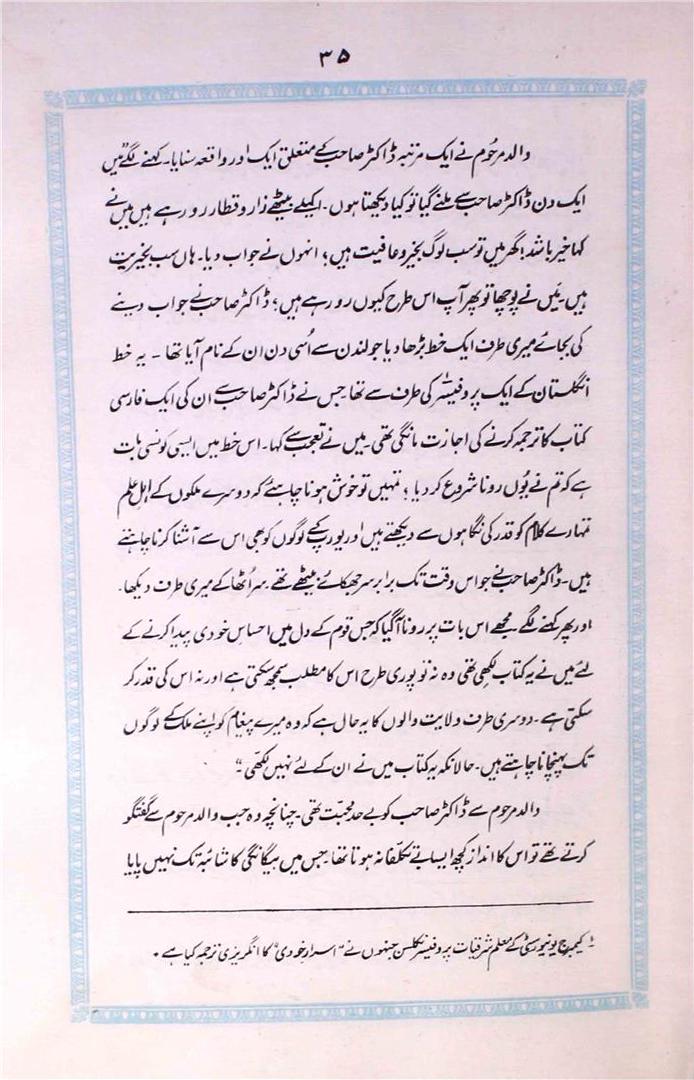 ۳۵
والد مرحوم نے ایک مرتبہ ڈاکٹر صاحب کے متعلق ایک اور واقعہ سنایا۔ کہنے لگے "میں
ایک دن ڈاکٹر صاحب سے ملنے گیا تو کیا دیکھتا ہوں۔ اکیلے بیٹھے زار و قطار رو رہے ہیں میں نے
کہا خیر باشد! گھر میں تو سب لوگ بخیر و عافیت ہیں؛ انہوں نے جواب دیا۔ ہاں سب بخیریت
ہیں۔ میَں نے پوچھا تو پھر آپ اس طرح کیوں رو رہے ہیں؛ ڈاکٹر صاحب نے جواب دینے
کی بجائے میری طرف ایک خط بڑھا دیا جو لندن سے اُسی دن ان کے نام آیا تھا ۔ یہ خط
انگلستان کے ایک پروفیسر۱ کی طرف سے تھا۔ جس نے ڈاکٹر صاحب سے ان کی ایک فارسی
کتاب کا ترجمہ کرنے کی اجازت مانگی تھی۔ میں نے تعجب سے کہا۔ اس خط میں ایسی کونسی بات
ہے کہ تم نے یُوں رونا شروع کر دیا ؛ تمہیں تو خوش ہونا چاہئے کہ دوسرے ملکوں کے اہل علم
تمہارے کلام کو قدر کی نگاہوں سے دیکھتے ہیں اور یورپ کے لوگوں کو بھی اس سے آشنا کرنا چاہتے
ہیں۔ ڈاکٹر صاحب نے جو اس وقت تک برابر سر جھکائے بیٹھے تھے۔ سر اُٹھا کے میری طرف دیکھا۔
اور پھر کہنے لگے۔ مجھے اس بات پر رونا آ گیا کہ جس قوم کے دل میں احساسِ خودی پیدا کرنے کے
لئے میں نے یہ کتاب لکھی تھی وہ نہ تو پوری طرح اس کا مطلب سمجھ سکتی ہے اور نہ اس کی قدر کر
سکتی ہے۔ دوسری طرف ولایت والوں کا یہ حال ہے کہ وہ میرے پیغام کو اپنے ملک کے لوگوں
تک پہنچانا چاہتے ہیں۔ حالانکہ یہ کتاب میں نے ان کے لئے نہیں لکھّی۔"
والد مرحوم سے ڈاکٹر صاحب کو بے حد محبت تھی۔ چنانچہ وہ جب والد مرحوم سے گفتگو
کرتے تھے تو اس کا انداز کچھ ایسا بے تکلّفانہ ہوتا تھا۔ جس میں بیگانگی کا شائبہ تک نہیں پایا
۱ کیمبرج یونیورسٹی کے معلم شرقیات پروفیسر نکلسن جنہوں نے "اسرار خودی" کا انگریزی ترجمہ کیا ہے ۔